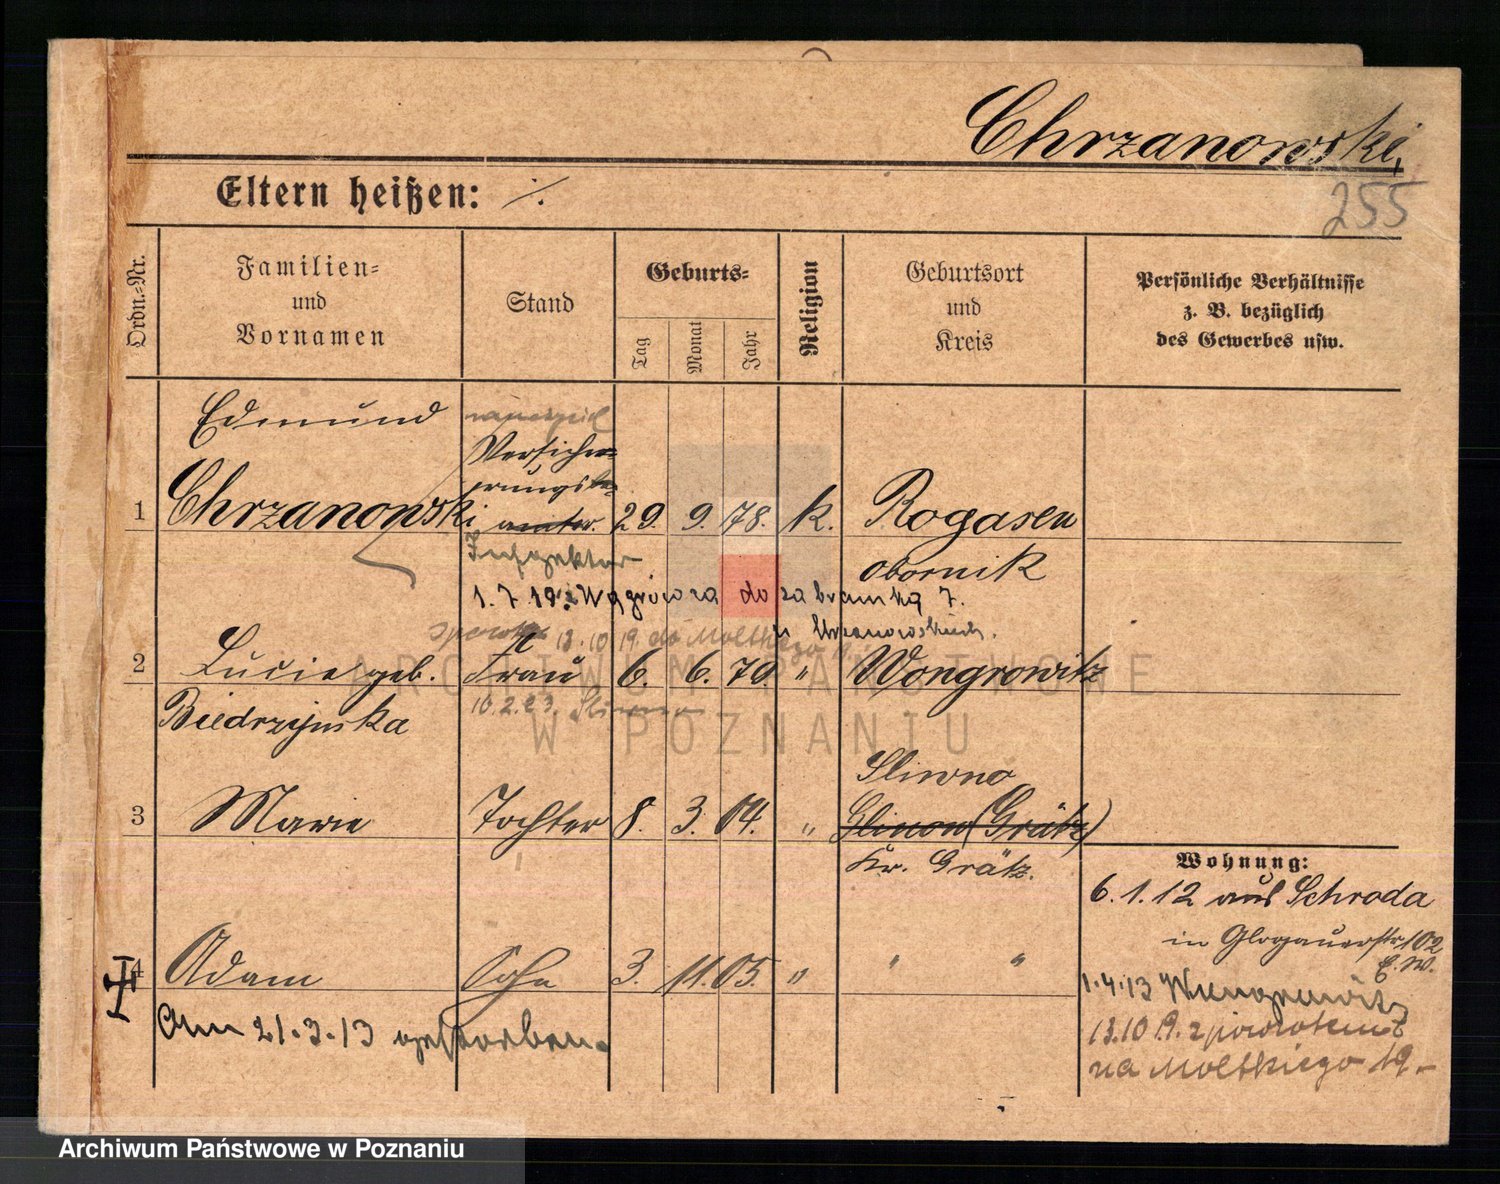 Chrzanowski,
255
Eltern heißen: ·/.
Ordn.-Nr.
Familien-
und
Vornamen
Stand
Geburts-
Tag
Monat
Jahr
Religion
Geburtsort
und
Kreis
Persönliche Verhältnisse
z. B. bezüglich
des Gewerbes usw.
Edmund
Versiche-
rungsbe-
1 Chrzanowski amter. 29. 9. 78. k. Rogasen
Inspektor
Obornik
1.7.19. z Wągrówca do za bramką 7.
u Chrzanowskich.
13.10 19. do Moltkego
2 Lucie geb. Frau 6. 6. 79. " Wongrowitz
Biedrzynska
10.2.23. Sliwno
Sliwno
3 Marie Tochter 8. 3. 04. " Glinow (Grätz)
Kr. Grätz.
Wohnung:
6.1.12 aus Schroda
in Glogauerstr. 102
E. W.
4 Adam Sohn 3. 11. 05. " " "
Am 21.3.13 gestorben.
1.4.13 Wongrowitz
13.10 19. z powrotem
na Moltkiego 19.-
ARCHIWUM PAŃSTWOWE
W POZNANIU
Archiwum Państwowe w Poznaniu